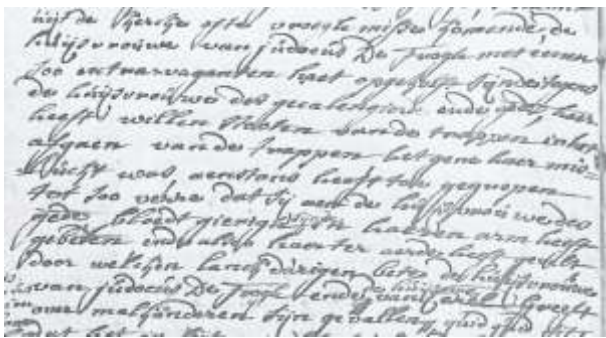 uijt de kercke ofte vroegh misse comende, de
huijsvrouwe van judocus De Troch met eenen
soo extravaganten haet opgevolt sijnde tegens
de huijsvrouwe des gecalengierde ende haer
heeft willen stooten vande trappen in het
afgaen van de trappen hetgene haer mis-
luckt was aenstons heeft toe gegrepen
tot soo verre dat sij aen de huijsvrouwe des
bloedt gierigh in haeren arm heeft
gebeten ende alsoo haer ter aerde heeft
door welcken landtdurigen bete de huijsvrouwe
van judocus De Troch ende heeft
over malkanderen sijn gevallen
dat het